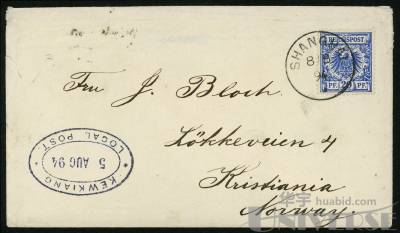 SHANGHAI
8
94
REICHSPOST
PF. 20 PF.
Fru J. Bloch
Løkkeveien 4
Kristiania
Norway
KEWKIANG
5 AUG 94
LOCAL POST.
华宇 huabid.com
UNIVERSE